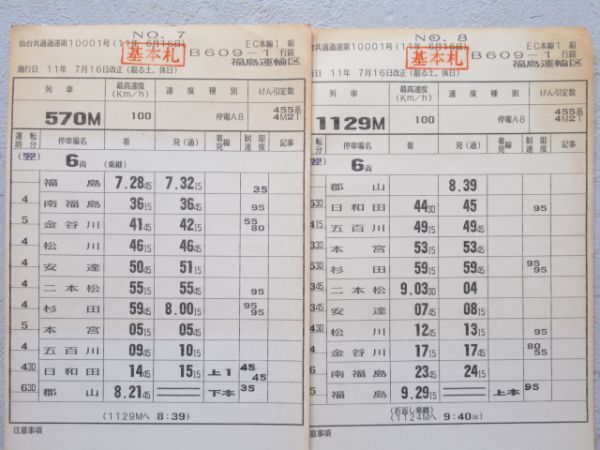 NO. 7
仙台共通運第10001号(11年 6月16日)
EC本線1 組
基本札
B609-1 行路
施行日 11年 7月16日改正(限る土,休日)
福島運輸区
列車 最高速度(Km/h) 速度種別 けん引定数
570M 100 停電A8 455系 4M2T
運転時分 停車場名 着 発(通) 着線発線 制限速度 記事
(翌) 6両 (乗継)
福島 7.28 45 7.32 15 35
4 南福島 36 15 36 45 95
5 金谷川 41 45 42 15 55 80
4 松川 46 15 46 45
4 安達 50 45 51 15
4 二本松 55 15 55 45 95
4 杉田 59 45 8.00 15 95 95
5 本宮 05 15 05 45
4 五百川 09 45 10 15
4 30 日和田 14 45 15 15 上1 45 45
6 30 郡山 8.21 45 下本 35
(1129Mへ 8:39)
注意事項
NO. 8
台共通運第10001号(11年 6月16日)
EC本線1 組
基本札
B609-1 行路
行日 11年 7月16日改正(限る土,休日)
福島運輸区
列車 最高速度(Km/h) 速度種別 けん引定数
1129M 100 停電A8 455系 4M2T
運転時分 停車場名 着 発(通) 着線発線 制限速度 記事
(翌) 6両
郡山 8.39
5 30 日和田 44 30 45 95
4 15 五百川 49 15 49 45
3 30 本宮 53 15 53 45
5 30 杉田 59 15 59 45 95 95
3 45 二本松 9.03 30 04
3 45 安達 07 45 08 15
4 30 松川 12 45 13 15 95
4 金谷川 17 15 17 45 80 55
6 南福島 23 45 24 15
5 福島 9.29 15 上本 95
(折返し乗継)
(1124Mへ 9:40 00)
注意事項